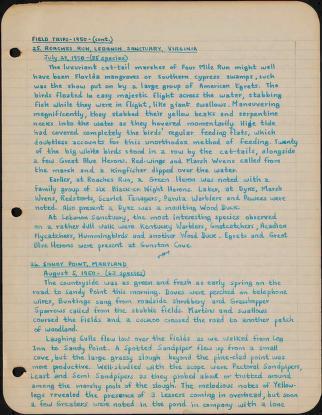 FIELD TRIPS-1950-(cont.)
25. ROACHES RUN, LEBANON SANCTUARY, VIRGINIA
July 29, 1950 - (55 species)
The luxuriant cat-tail marshes of Four Mile Run might well
have been Florida mangroves or Southern cypress swamps, such
was the show put on by a large group of American Egrets. The
birds floated in easy majestic flight across the water, stabbing
fish while they were in flight, like giant swallows. Maneuvering
magnificently, they stabbed their yellow beaks and serpentine
necks into the water as they hovered momentarily. High tide
had covered completely the birds' regular feeding flats, which
doubtless accounts for this unorthodox method of feeding. Twenty
of the big white birds stood in a row by the cat-tails, alongside
a few Great Blue Herons. Red-wings and Marsh Wrens called from
the marsh and a Kingfisher dipped over the water.
Earlier, at Roaches Run, a Green Heron was noted with a
family group of six Black-cr Night Herons. Later, at Dyke, Marsh
Wrens, Redstarts, Scarlet Tanagers, Parula Warblers and Pewees were
noted. Also present at Dyke was a moulting Wood Duck.
At Lebanon Sanctuary, the most interesting species observed
on a rather dull walk were Kentucky Warblers, Gnatcatchers, Acadian
Flycatchers, Hummingbirds and another Wood Duck. Egrets and Great
Blue Herons were present at Gunston Cove.
26. SANDY POINT, MARYLAND
August 5, 1950 - (62 species)
The countryside was as green and fresh as early spring on the
road to Sandy Point this morning. Doves were perched on telephone
wires, Buntings sang from roadside shrubbery and Grasshopper
Sparrows called from the stubble fields. Martins and swallows
coursed the fields and a cuckoo crossed the road to another patch
of woodland.
Laughing Gulls flew low over the fields as we walked from Log
Inn to Sandy Point. A Spotted Sandpiper flew up from a small
cove, but the large grassy slough beyond the pine-clad point was
more productive. Well-studied with the scope were Pectoral Sandpipers,
Least and Semi. Sandpipers as they probed about or trotted around
among the marshy pools of the slough. The melodious notes of Yellow-
legs revealed the presence of 3 Lessers coming in overhead, but soon
a few Greaters were noted in the pond in company with a lone